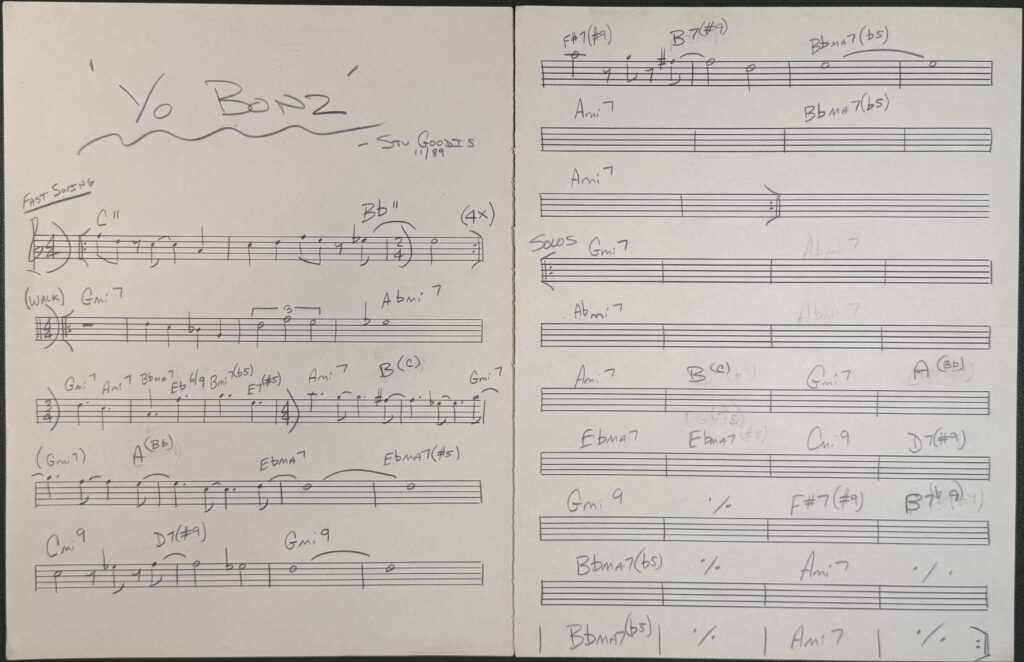 'Yo Bonz'
- Stu Goodis
11/89
Fast Swing
C" Bb" (4x)
4/4 2/4
(Walk) Gmi7 Abmi7
4/4 3
Gmi7 Ami7 Bbma7 Eb6/9 Bmi7(b5) E7(#5) Ami7 B(C) Gmi7
3/4 4/4
(Gmi7) A(Bb) Ebma7 Ebma7(#5)
Cmi9 D7(#9) Gmi9
F#7(#9) B7(#9) Bbma7(b5)
Ami7 Bbma7(b5)
Ami7
Solos Gmi7 Abmi7
Abmi7 Abmi7
Ami7 B(C) Gmi7 A(Bb)
Ebma7 Ebma7(#5) Cmi9 D7(#9)
Gmi9 % F#7(#9) B7(b9)
Bbma7(b5) % Ami7 %
Bbma7(b5) % Ami7 %